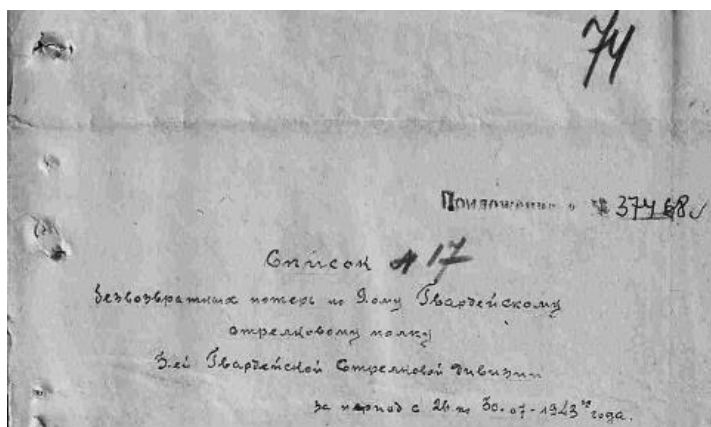 74
Приложение к № 37468
Список № 17
безвозвратных потерь по 9ому Гвардейскому
стрелковому полку
3-ей Гвардейской Стрелковой дивизии
за период с 26 по 30-07-1943 года.